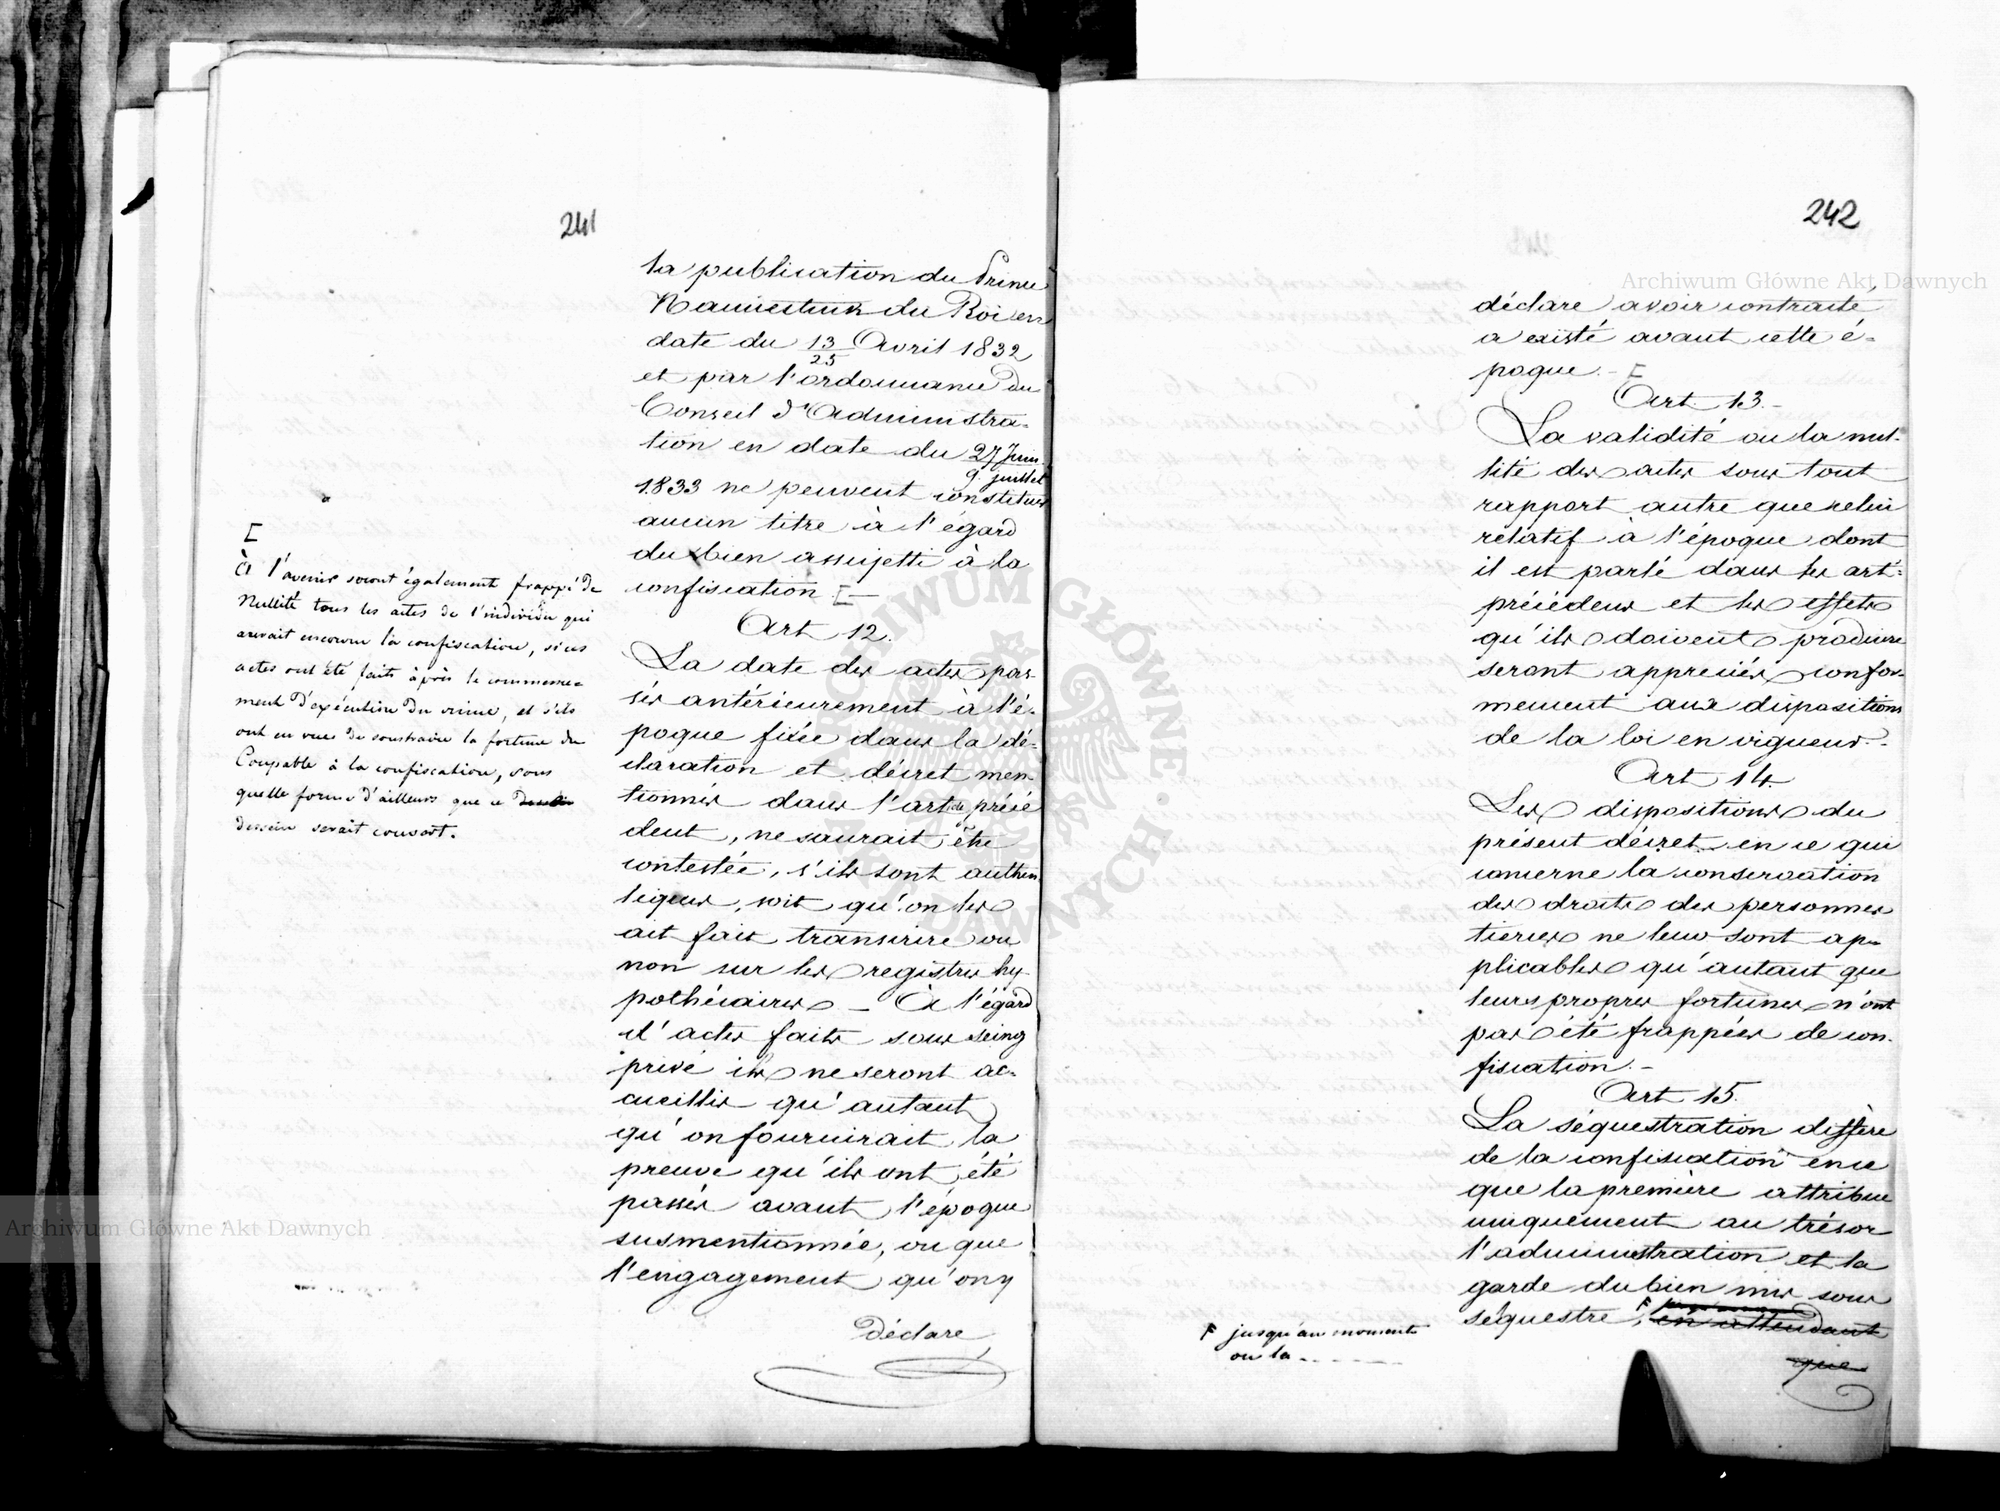 241
la publication du Prince
Namiestnik du Roi en
date du 13/25 Avril 1832
et par l'ordonnance du
Conseil d'Administra-
tion en date du 27 Juin
9 juillet
1833 ne peuvent constituer
aucun titre à l'égard
du bien assujetti à la
confiscation [—
Art 12.
La date des actes pas-
sés antérieurement à l'é-
poque fixée dans la dé-
claration et décret men-
tionnés dans l'art précé
dent, ne saurait être
contestée, s'ils sont authen
tiques, soit qu'on les
ait fait transcrire ou
non sur les registres hy-
pothécaires — À l'égard
d'actes faits sous seing
privé ils ne seront ac-
cueillis qu'autant
qu'on fournirait la
preuve qu'ils ont été
passés avant l'époque
susmentionnée, ou que
l'engagement qu'on y
déclare
[
à l'avenir seront également frappé de
Nullité tous les actes de l'individu qui
aurait encouru la confiscation, si ces
actes ont été faits après le commence-
ment d'exécution du crime, et s'ils
ont en vue de soustraire la fortune du
Coupable à la confiscation, sous
quelle forme d'ailleurs que ce
dessein serait couvert.
242
déclare avoir contracté
a existé avant cette é-
poque. - [
Art. 13.-
La validité ou la nul-
lité des actes sous tout
rapport autre que celui
relatif à l'époque dont
il est parlé dans les art:
précédens et les effets
qu'ils doivent produire
seront appreciés confor-
mement aux dispositions
de la loi en vigueur.-
Art 14.
Les dispositions du
présent décret en ce qui
concerne la conservation
des droits des personnes
tierces ne leur sont ap-
plicables qu'autant que
leurs propres fortunes n'ont
pas été frappées de con-
fiscation.-
Art 15.
La séquestration diffère
de la confiscation en ce
que la première attribue
uniquement au trésor
l'administration et la
garde du bien mis sous
séquestre, F en attendant
que
F jusqu'au moment
ou la - - - - -
Archiwum Główne Akt Dawnych
Archiwum Główne Akt Dawnych
ARCHIWUM GŁÓWNE AKT DAWNYCH